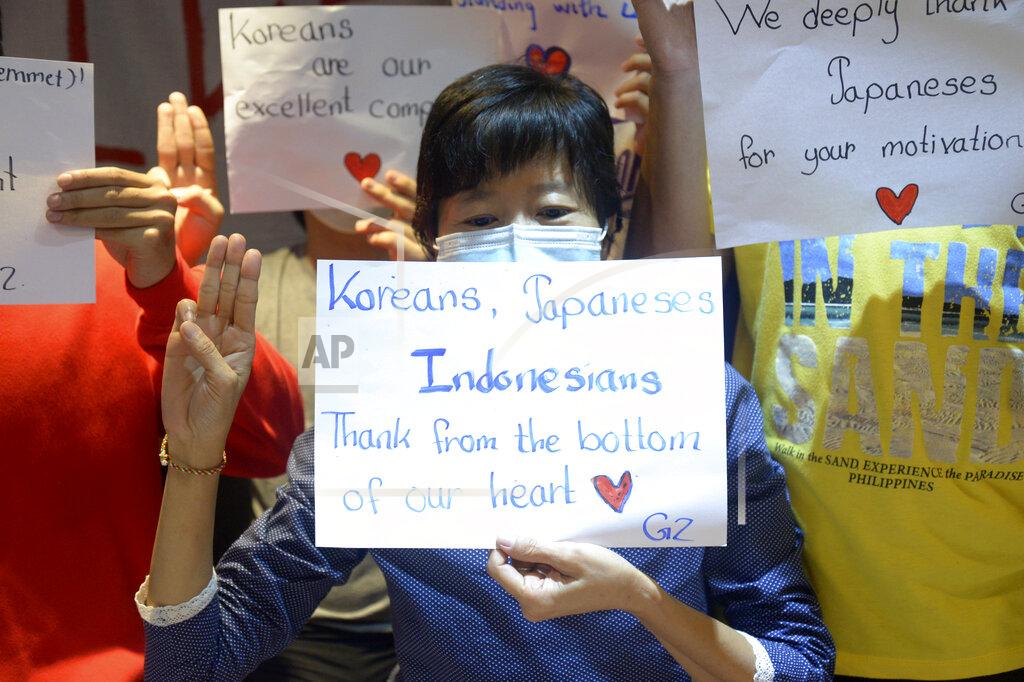 emmet)!
2.
Koreans
are our
excellent comp
standing with
We deeply thank
Japaneses
for your motivation
Koreans, Japaneses
Indonesians
Thank from the bottom
of our heart
GZ
AP
IN THE
SAND
Walk in the SAND, EXPERIENCE the PARADISE
PHILIPPINES